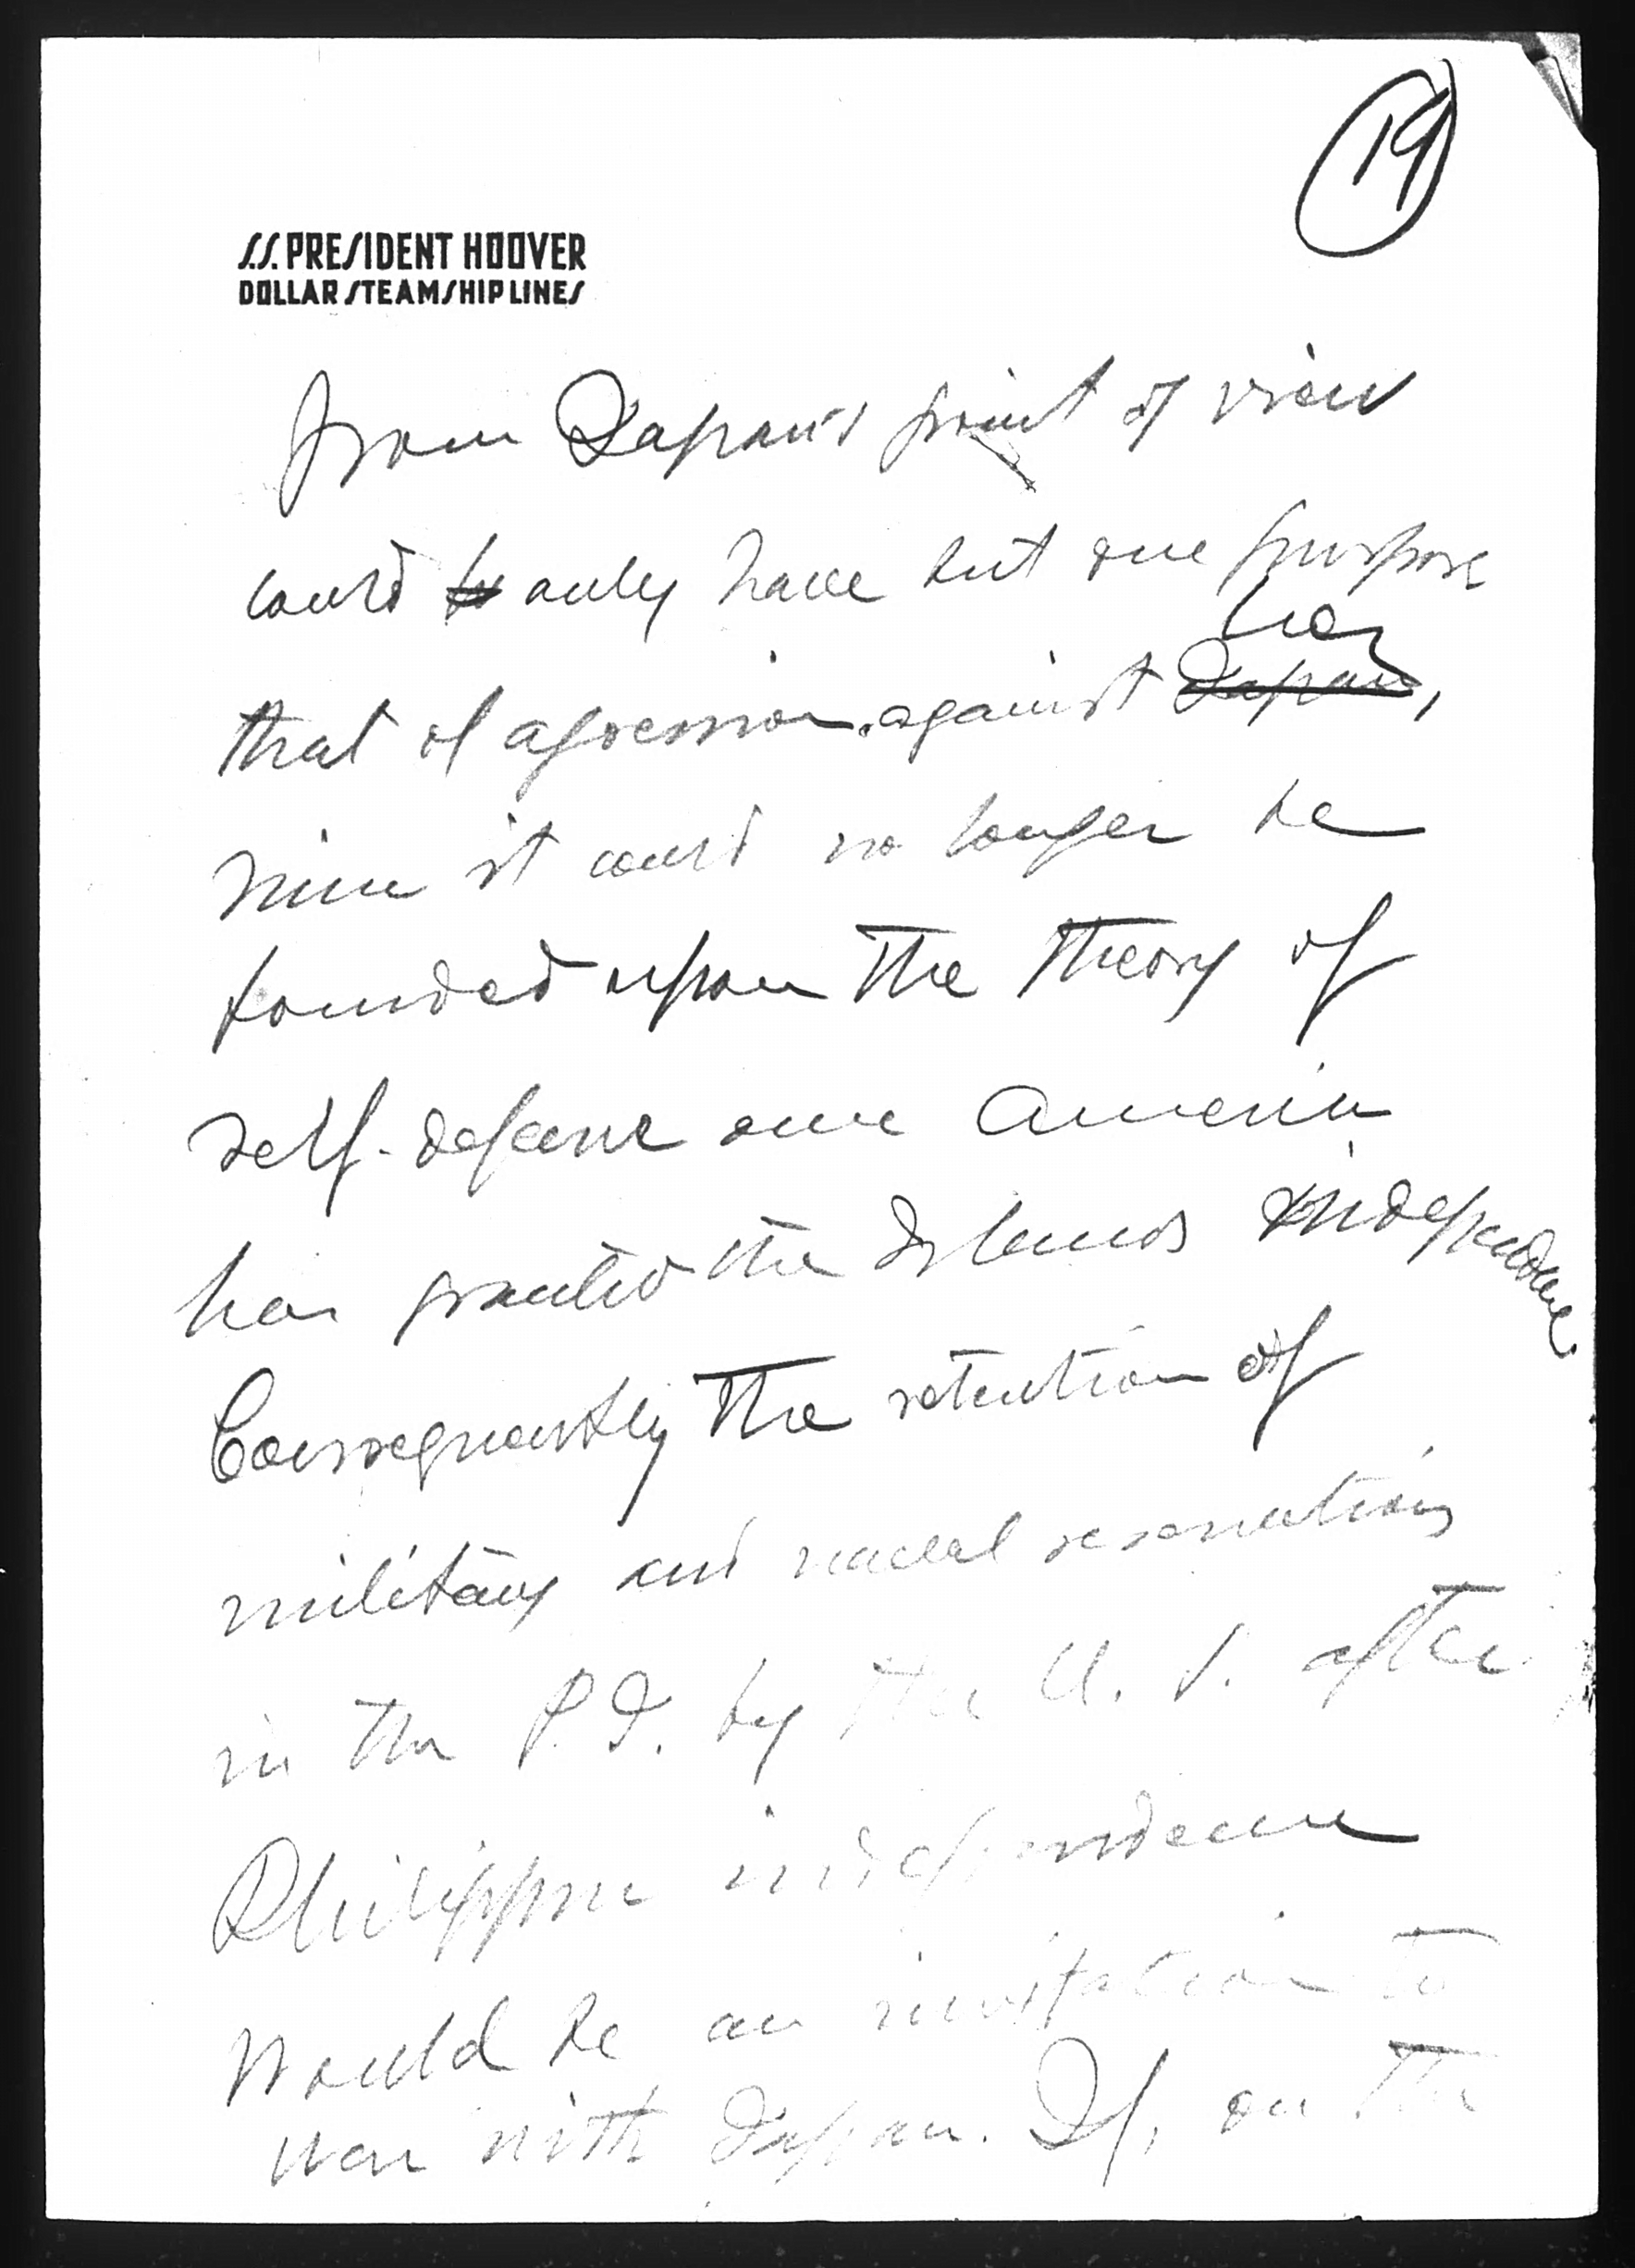 19
S.S. PRESIDENT HOOVER
DOLLAR STEAMSHIP LINES
from Japan's point of view
could be only have but one purpose
her
that of agression against Japan,
since it could no longer be
founded upon the theory of
self-defense once America
has granted the Islands independence.
Consequently the retention of
military and naval reservations
in the P.I. by the U.S. after
Philippine independence
would be an invitation to
war with Japan. If, on the